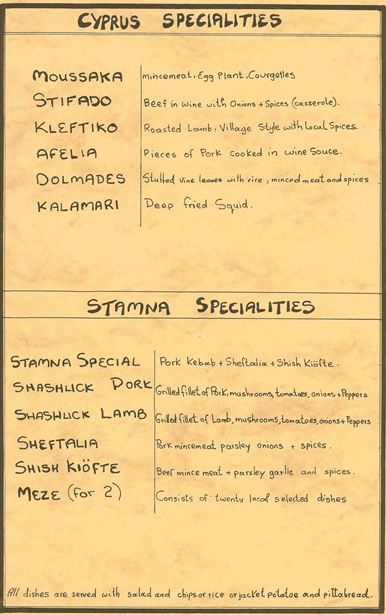 CYPRUS SPECIALITIES
MOUSSAKA mincemeat, Egg Plant, Courgettes
STIFADO Beef in wine with Onions + Spices (casserole).
KLEFTIKO Roasted Lamb, Village Style with Local Spices.
AFELIA Pieces of Pork Cooked in wine Souce.
DOLMADES Stuffed vine leaves with rice, minced meat and spices
KALAMARI Deep fried Squid.
STAMNA SPECIALITIES
STAMNA SPECIAL Pork Kebab + Sheftalia + Shish Kiöfte.
SHASHLICK PORK Grilled fillet of Pork, mushrooms, tomatoes, onions + Peppers
SHASHLICK LAMB Grilled fillet of Lamb, mushrooms, tomatoes, onions + Peppers
SHEFTALIA Pork mincemeat parsley onions + spices.
SHISH KIÖFTE Beef mince meat + parsley garlic and spices.
MEZE (for 2) Consists of twenty local selected dishes
All dishes are served with salad and chips or rice or jacket potatoe and pittabread.